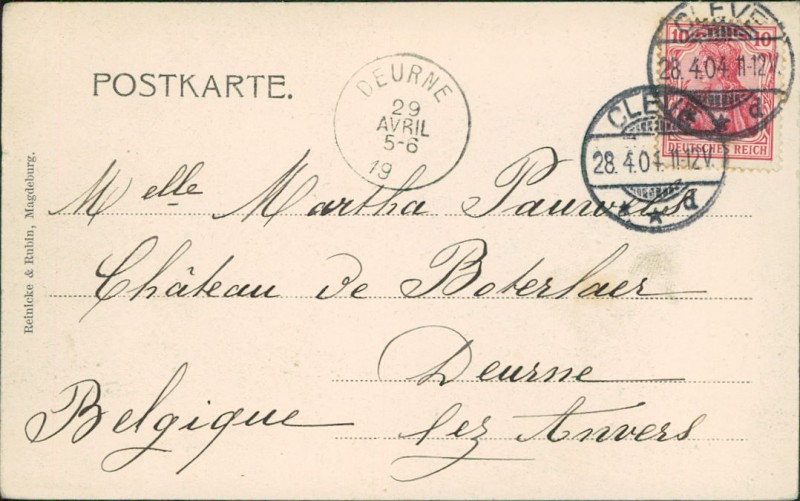 POSTKARTE.
DEURNE
29
AVRIL
5-6
19
CLEVE
28.4.04.11-12V.
d
CLEVE
28.4.04.11-12V.
d
10 10
DEUTSCHES REICH
Melle Martha Pauwels
Château de Boterlaer
Deurne
Belgique lez Anvers
Reinicke & Rubin, Magdeburg.